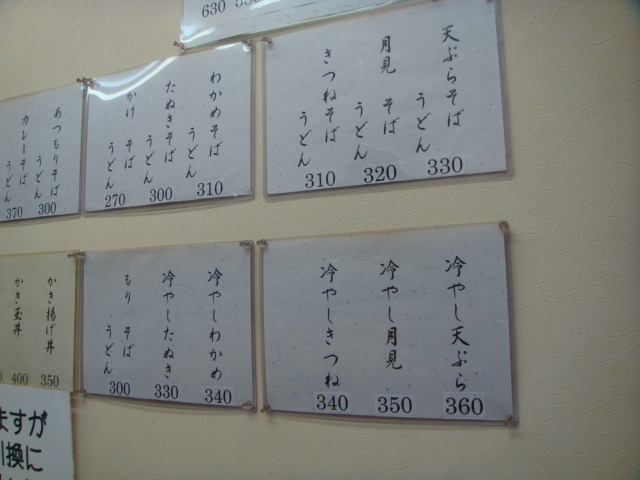 630
天ぷらそば
うどん
330
月見 そば
うどん
320
きつねそば
うどん
310
わかめそば
うどん
310
たぬきそば
うどん
300
かけ そば
うどん
270
あつもりそば
うどん
300
カレーそば
うどん
370
冷やし天ぷら
360
冷やし月見
350
冷やしきつね
340
冷やしわかめ
340
冷やしたぬき
330
もり そば
うどん
300
かき揚げ丼
350
かき玉丼
400
ますが
引換に